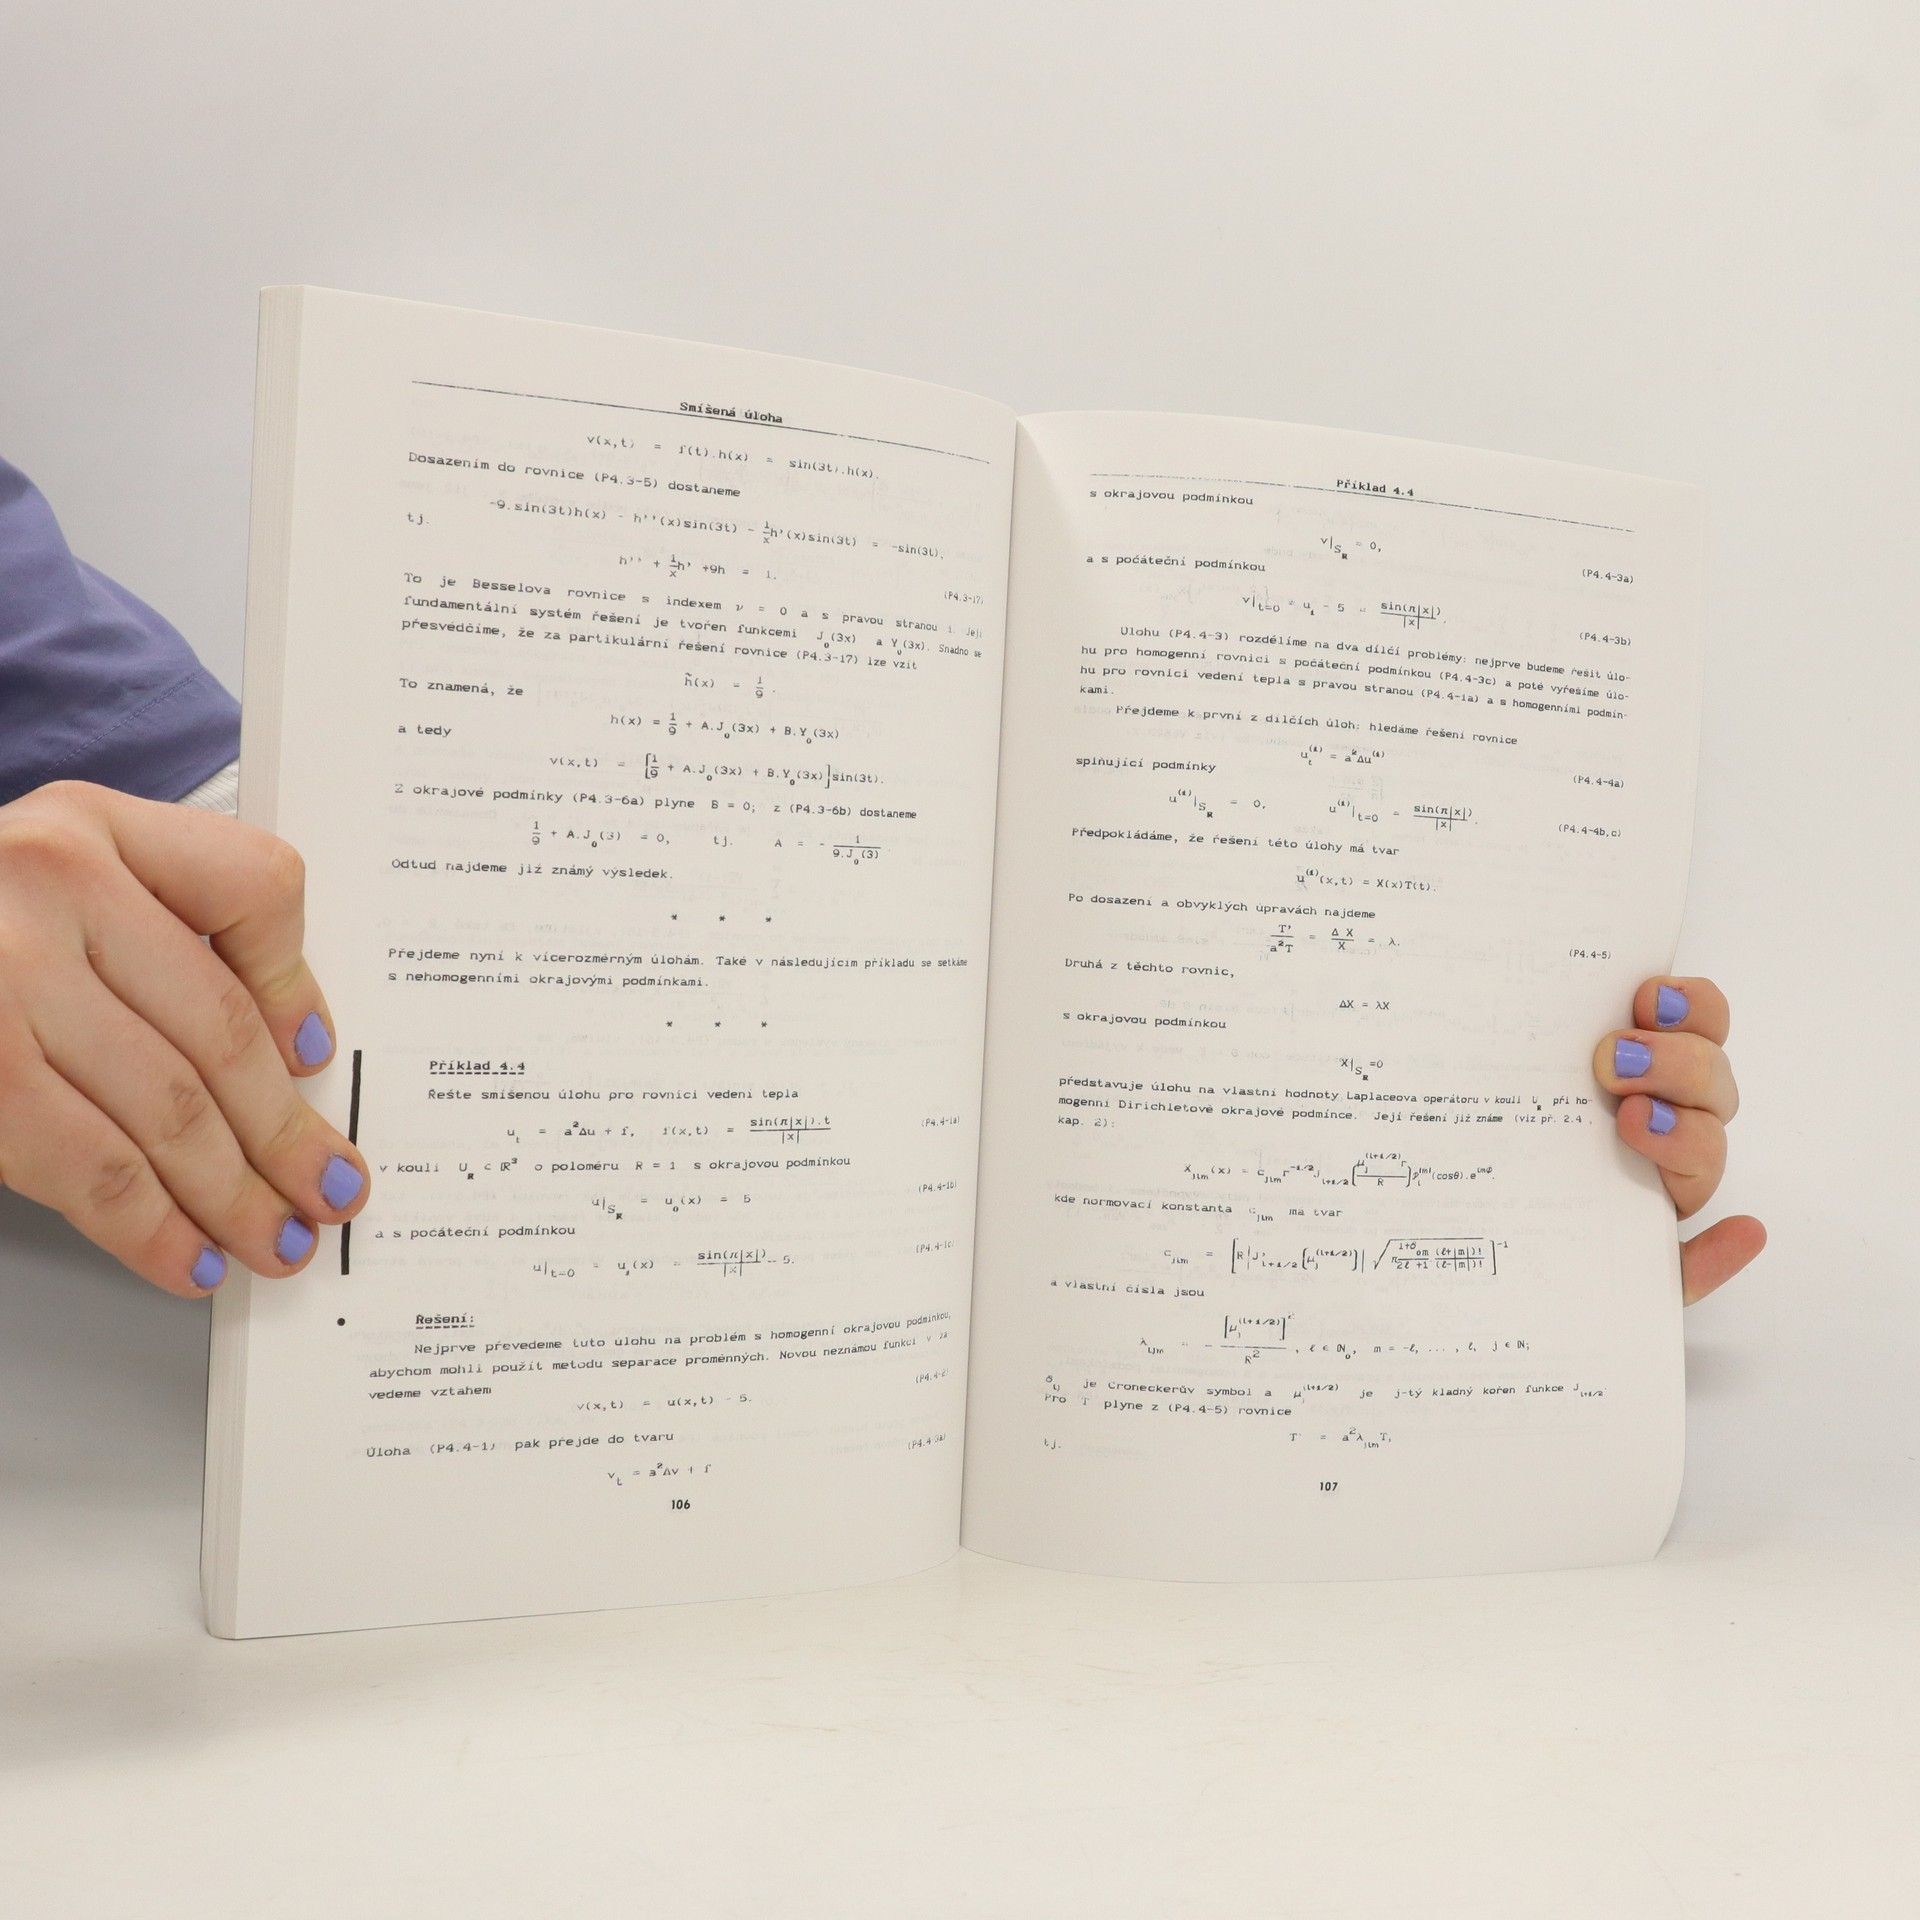 Smíšená úloha
v(x,t) = f(t).h(x) = sin(3t).h(x).
Dosazením do rovnice (P4.3-5) dostaneme
-9.sin(3t)h(x) - h''(x)sin(3t) - 1/x h'(x)sin(3t) = -sin(3t),
tj.
h'' + 1/x h' +9h = 1. (P4.3-17)
To je Besselova rovnice s indexem ν = 0 a s pravou stranou 1. Její
fundamentální systém řešení je tvořen funkcemi J₀(3x) a Y₀(3x). Snadno se
přesvědčíme, že za partikulární řešení rovnice (P4.3-17) lze vzít
h̃(x) = 1/9 .
To znamená, že
h(x) = 1/9 + A.J₀(3x) + B.Y₀(3x)
a tedy
v(x,t) = [1/9 + A.J₀(3x) + B.Y₀(3x)]sin(3t).
Z okrajové podmínky (P4.3-6a) plyne B = 0; z (P4.3-6b) dostaneme
1/9 + A.J₀(3) = 0, tj. A = - 1/(9.J₀(3)) .
Odtud najdeme již známý výsledek.
* * *
Přejdeme nyní k vícerozměrným úlohám. Také v následujícím příkladu se setkáme
s nehomogenními okrajovými podmínkami.
* * *
Příklad 4.4
Řešte smíšenou úlohu pro rovnici vedení tepla
u_t = a²Δu + f, f(x,t) = sin(π|x|).t / |x| (P4.4-1a)
v kouli U_R ⊂ ℝ³ o poloměru R = 1 s okrajovou podmínkou
u|_{S_R} = u₀(x) = 5 (P4.4-1b)
a s počáteční podmínkou
u|_{t=0} = u₁(x) = sin(π|x|)/|x| - 5. (P4.4-1c)
Řešení:
Nejprve převedeme tuto úlohu na problém s homogenní okrajovou podmínkou,
abychom mohli použít metodu separace proměnných. Novou neznámou funkci v za-
vedeme vztahem
v(x,t) = u(x,t) - 5. (P4.4-2)
Úloha (P4.4-1) pak přejde do tvaru
v_t = a²Δv + f (P4.4-3a)
106
Příklad 4.4
s okrajovou podmínkou
v|_{S_R} = 0, (P4.4-3a)
a s počáteční podmínkou
v|_{t=0} = u₁ - 5 = sin(π|x|)/|x| . (P4.4-3b)
Úlohu (P4.4-3) rozdělíme na dva dílčí problémy: nejprve budeme řešit úlo-
hu pro homogenní rovnici s počáteční podmínkou (P4.4-3c) a poté vyřešíme úlo-
hu pro rovnici vedení tepla s pravou stranou (P4.4-1a) a s homogenními podmín-
kami.
Přejdeme k první z dílčích úloh: hledáme řešení rovnice
u_t^(1) = a²Δu^(1) (P4.4-4a)
splňující podmínky
u^(1)|_{S_R} = 0, u^(1)|_{t=0} = sin(π|x|)/|x| . (P4.4-4b,c)
Předpokládáme, že řešení této úlohy má tvar
u^(1)(x,t) = X(x)T(t).
Po dosazení a obvyklých úpravách najdeme
T'/(a²T) = Δ X/X = λ. (P4.4-5)
Druhá z těchto rovnic,
ΔX = λX
s okrajovou podmínkou
X|_{S_R} =0
představuje úlohu na vlastní hodnoty Laplaceova operátoru v kouli U_R při ho-
mogenní Dirichletově okrajové podmínce. Její řešení již známe (viz př. 2.4 ,
kap. 2):
X_{jlm}(x) = c_{jlm} r^{-1/2} J_{l+1/2}[μ_j^{(l+1/2)} r / R] P_l^{|m|}(cosθ).e^{imφ}.
kde normovací konstanta c_{jlm} má tvar
c_{jlm} = [R|J'_{l+1/2}[μ_j^{(l+1/2)}]| √(π (1+δ_{om})/(2ℓ+1) (ℓ+|m|)!/(ℓ-|m|)!)]^{-1}
a vlastní čísla jsou
λ_{ljm} = - [μ_j^{(l+1/2)}]²/R² , ℓ ∈ ℕ₀, m = -ℓ, ... , ℓ, j ∈ ℕ;
δ_{ij} je Croneckerův symbol a μ_j^{(l+1/2)} je j-tý kladný kořen funkce J_{l+1/2}
Pro T plyne z (P4.4-5) rovnice
T' = a²λ_{jlm}T,
tj.
107